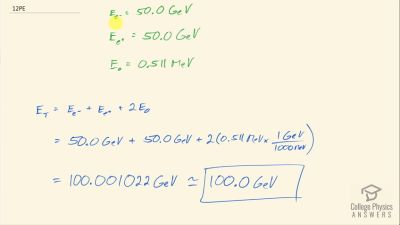 12PE
E_e⁻ = 50.0 GeV
E_e⁺ = 50.0 GeV
E_0 = 0.511 MeV
E_T = E_e⁻ + E_e⁺ + 2E_0
= 50.0 GeV + 50.0 GeV + 2(0.511 MeV × 1 GeV/1000 MeV)
= 100.001022 GeV ≃ 100.0 GeV
College Physics
ANSWERS